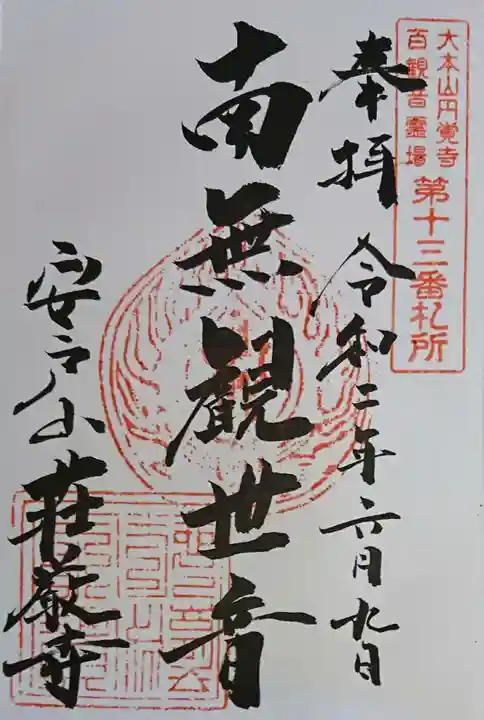 大本山円覚寺
百観音霊場
第十三番札所
奉拝 令和二年六月九日
南無観世音
安戸山 荘厳寺